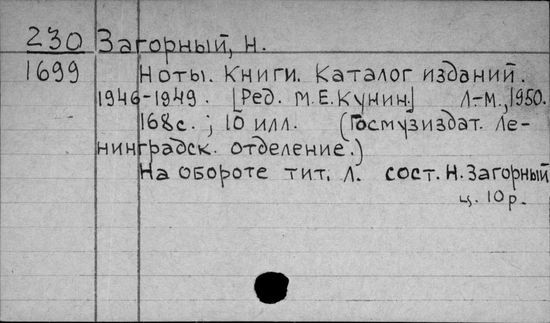 230 Загорный, Н.
1699 Ноты. Книги. Каталог изданий.
1946-1949. [Ред. М.Е.Кунин.] Л.-М., 1950.
168с.; 10 илл. (Госмузиздат. Ле-
нинградск. отделение.)
На обороте тит. Л. сост. Н. Загорный
ц. 10р.